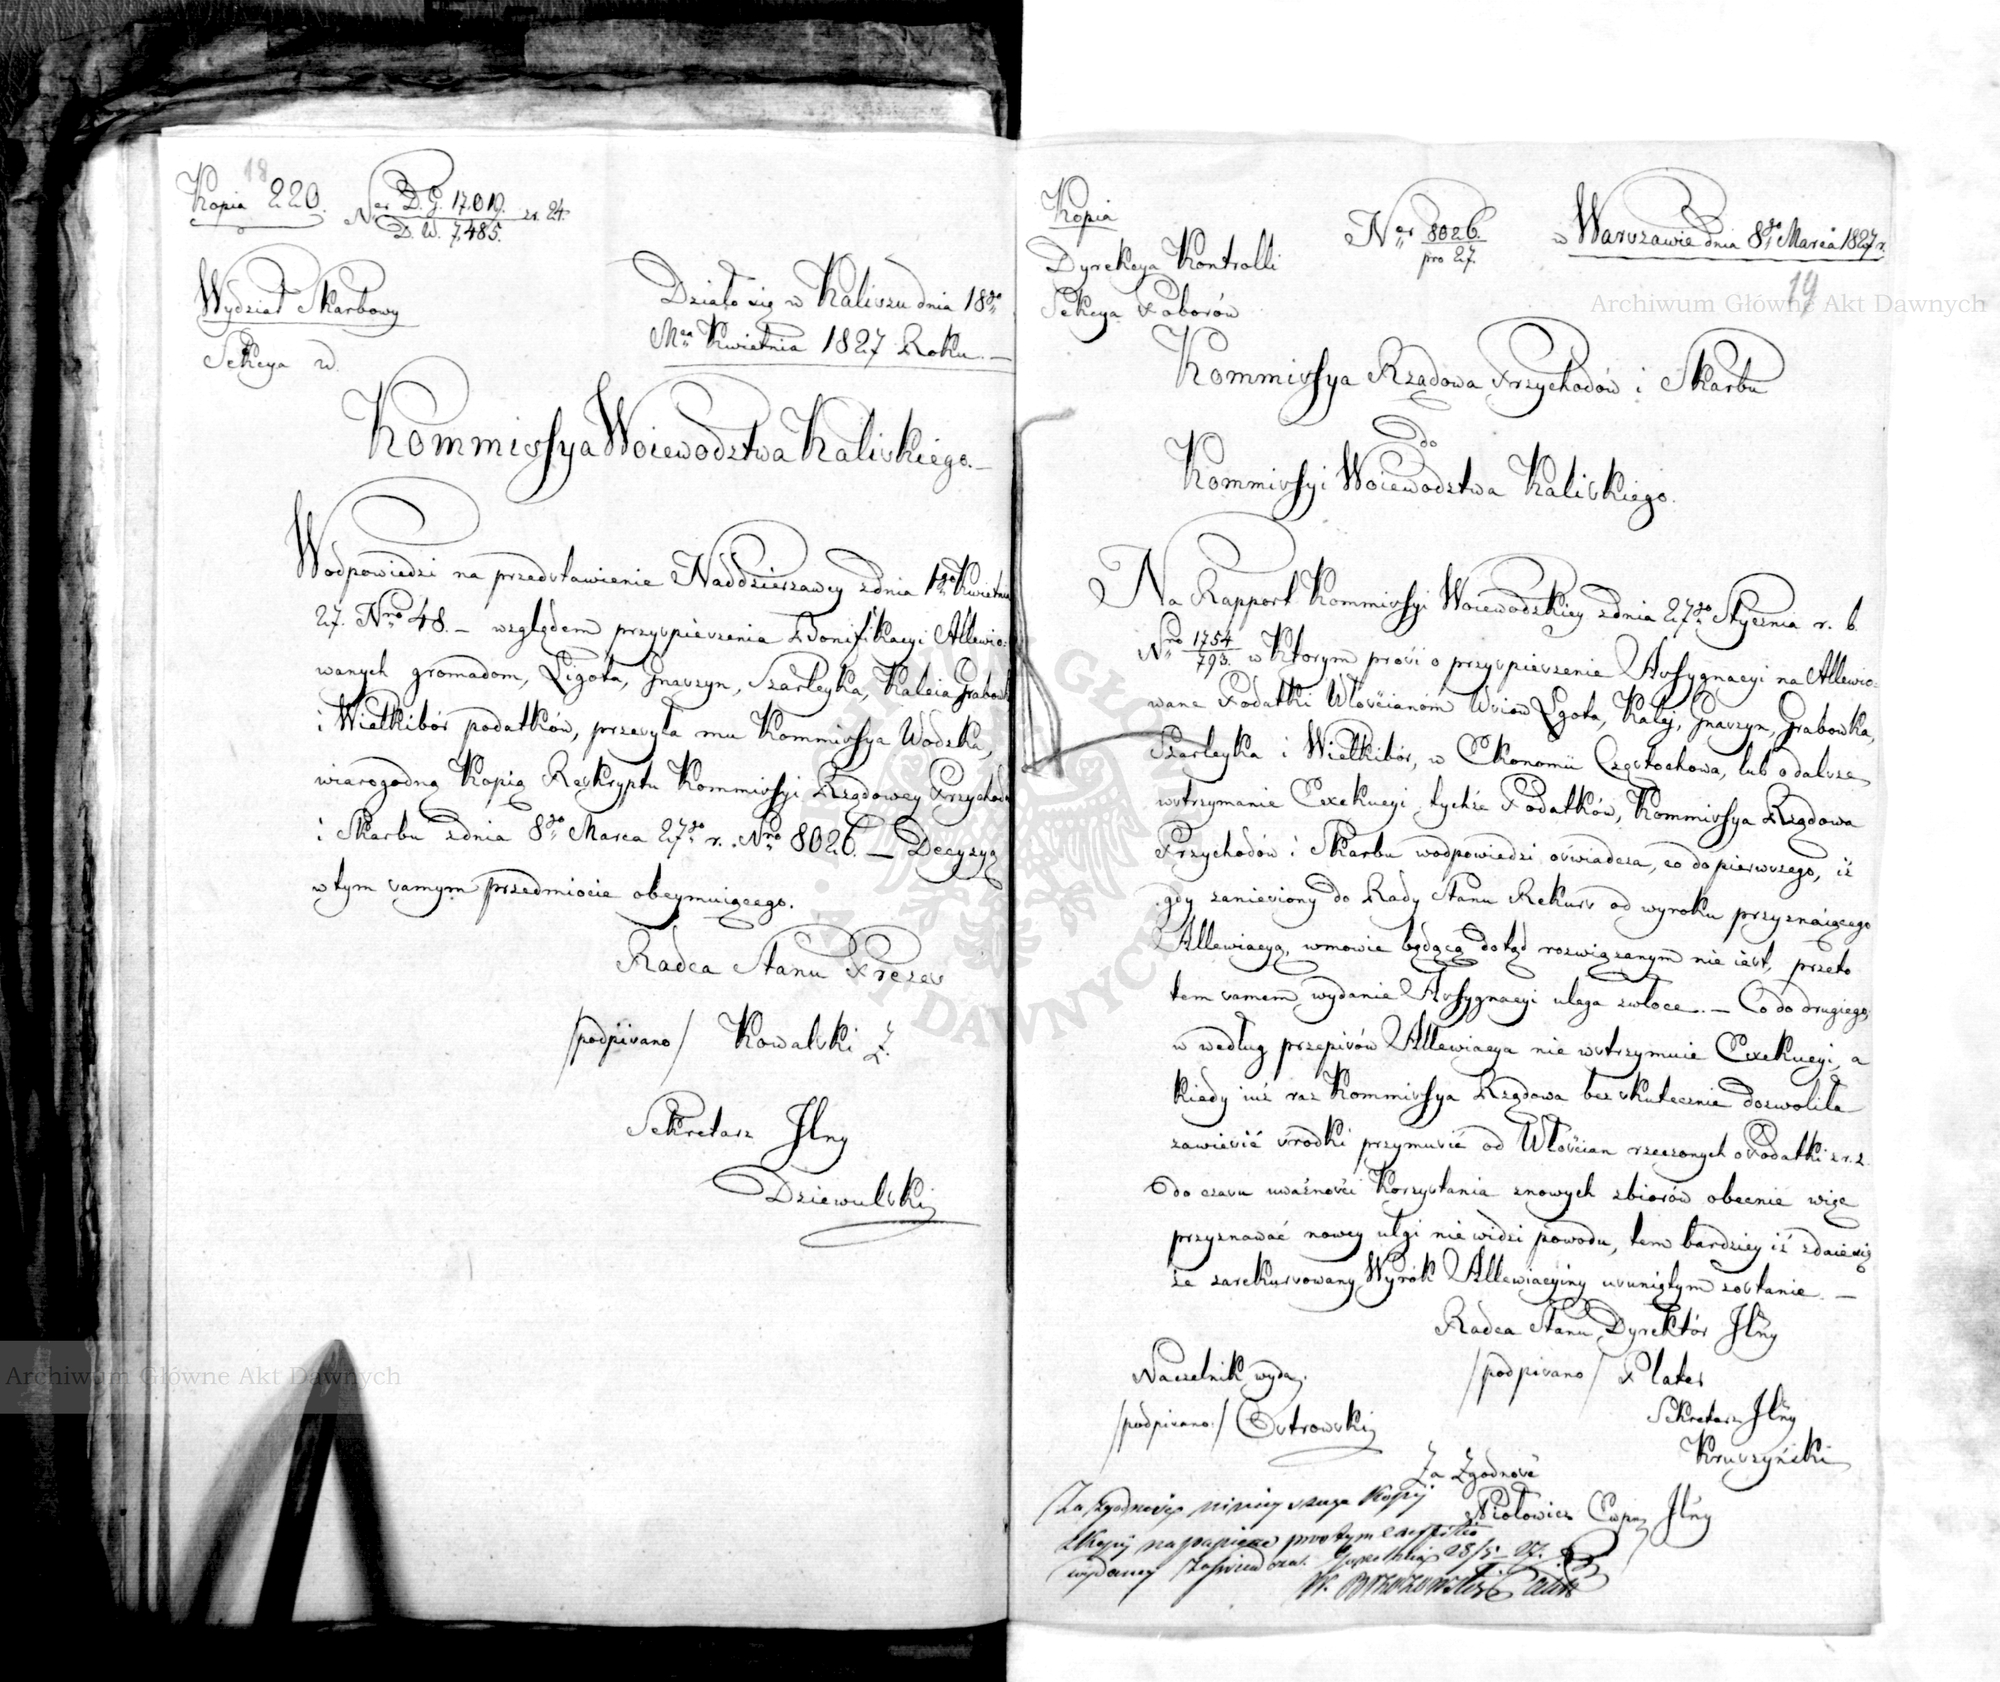 18
Kopia 220. Ner D. G. 17.019. z r. 24.
D. W. 7,485.
Wydział Skarbowy
Sekcya
Działo się w Kaliszu dnia 18go
Mca Kwietnia 1827 Roku. —
Kommissya Woiewodztwa Kaliskiego. —
W odpowiedzi na przedstawienie Naddzierzawcy z dnia 1go Kwietnia
27. Nro 48. — względem przyspieszenia Bonifikacyi Allewio-
wanych gromadom, Ligota, Gnaszyn, Szarleyka, Kaleia Grabowka
i Wielkibór podatków, przesyła mu Kommissya Wodzka,
wiarogodną Kopią Reskryptu Kommissyi Rządowey Przychodów
i Skarbu z dnia 8go Marca 27go r. Nro 8026. — Decyzyą
w tym samym przedmiocie obeymuiącego.
Radca Stanu Prezes
/podpisano/ Kowalski Z.
Sekretarz Jlny
Dziewulski
Kopia
Ner 8026.
pro 27.
w Warszawie dnia 8go Marca 1827 r.
19
Dyrekcya Kontrolli
Sekcya Poborów
Kommissya Rządowa Przychodów i Skarbu
do
Kommissyi Woiewodztwa Kaliskiego.
Na Rapport Kommissyi Woiewodzkiey z dnia 27go Stycznia r. b.
Nro 1754
793. w ktorym prosi o przyspieszenie Assygnacyi na Allewio-
wane Podatki Włościanom Wsiow Lgota, Kaley, Gnaszyn, Grabowka,
Szarleyka i Wielkibór, w Ekonomii Częstochowa, lub o dalsze
wstrzymanie Exekucyi tychże Podatków, Kommissya Rządowa
Przychodów i Skarbu w odpowiedzi oświadcza, co do pierwszego, iż
gdy zaniesiony do Rady Stanu Rekurs od wyroku przyznaiącego
Allewiacyą, w mowie będącą dotąd rozwiązanym nie iest, przeto
tem samem wydanie Assygnacyi ulega zwłoce. — Co do drugiego,
w według przepisów Allewiacya nie wstrzymuie Exekucyi, a
kiedy iuż raz Kommissya Rządowa bezskutecznie dozwoliła
zawiesić środki przymusić od Włościan rzeczonych o Podatki z r. z.
do czasu uważności korzystania z nowych zbiorów obecnie więc
przyznawać nowey ulgi nie widzi powodu, tem bardziey iż zdaie się
że zarekursowany Wyrok Allewiacyiny usuniętym zostanie. —
Radca Stanu, Dyrektór Jlny
Naczelnik wyda.
/podpisano/ Plater
/podpisano/ Ostrowski
Sekretarz Jlny
Kruszyński
Za Zgodność
Za zgodność ninieyszego Kopij
Jlny
z Kopij na papierze prostym
wydaney 28/5 27.
Archiwum Główne Akt Dawnych
Archiwum Główne Akt Dawnych